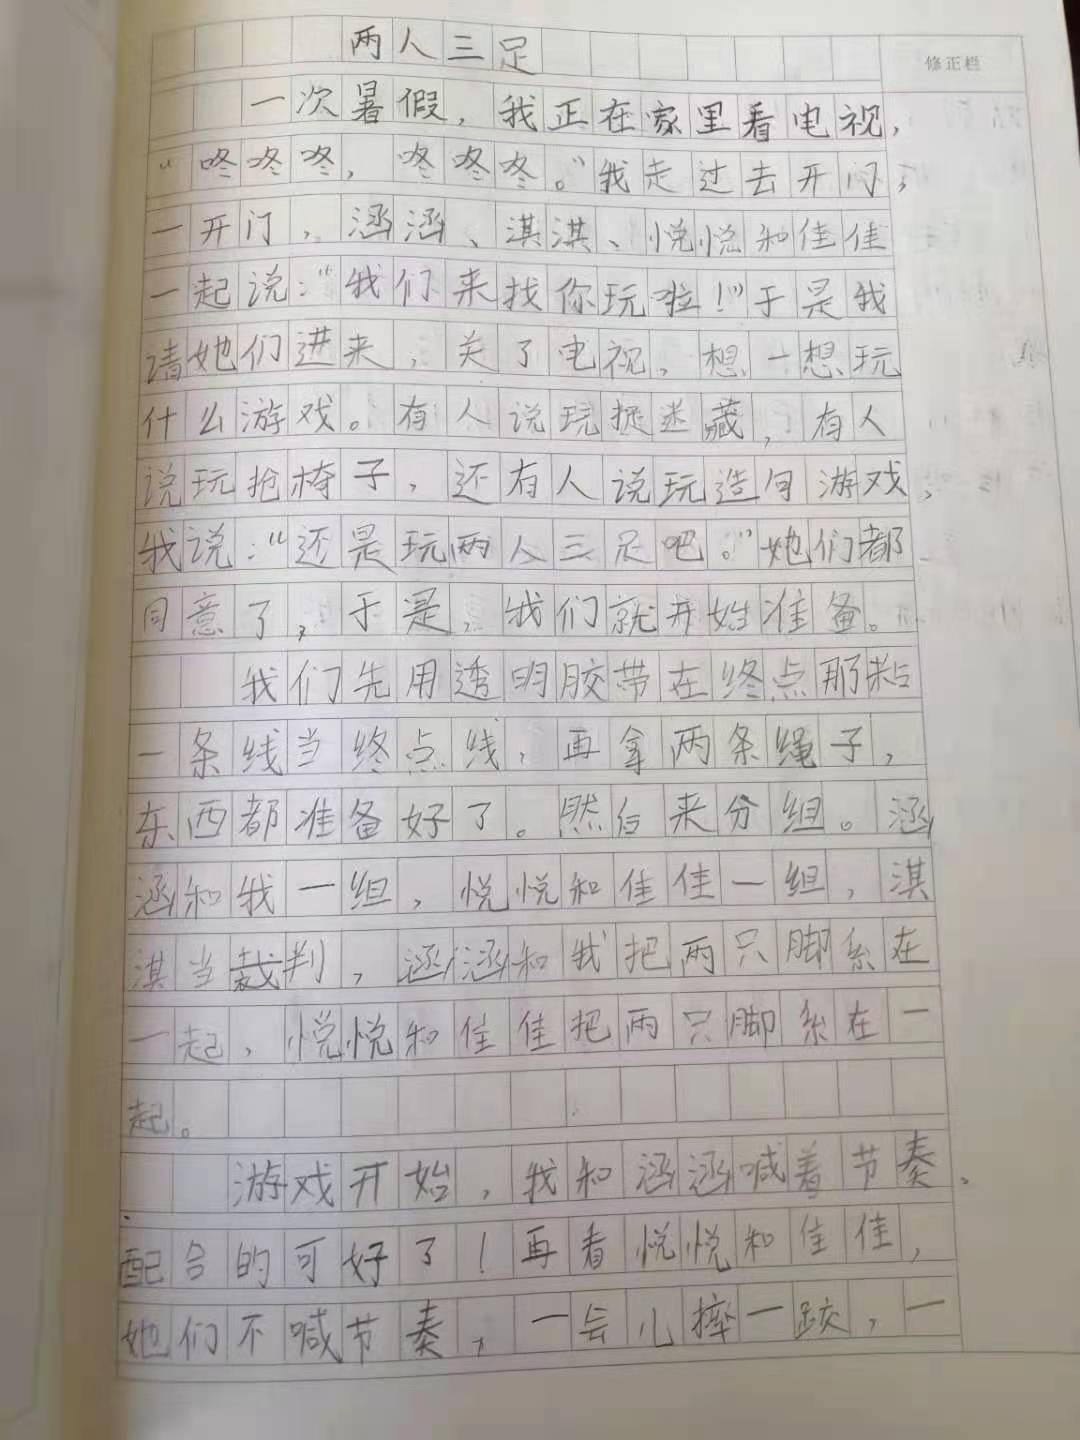 两人三足
修正栏
一次暑假，我正在家里看电视，
“咚咚咚，咚咚咚。”我走过去开门，
一开门，涵涵、淇淇、悦悦和佳佳
一起说：“我们来找你玩啦！”于是我
请她们进来，关了电视，想一想玩
什么游戏。有人说玩捉迷藏，有人
说玩抢椅子，还有人说玩造句游戏，
我说：“还是玩两人三足吧。”她们都
同意了，于是，我们就开始准备。
我们先用透明胶带在终点那粘
一条线当终点线，再拿两条绳子，
东西都准备好了。然后来分组。涵
涵和我一组，悦悦和佳佳一组，淇
淇当裁判，涵涵和我把两只脚系在
一起，悦悦和佳佳把两只脚系在一
起。
游戏开始，我和涵涵喊着节奏、
配合的可好了！再看悦悦和佳佳，
她们不喊节奏，一会儿摔一跤，一